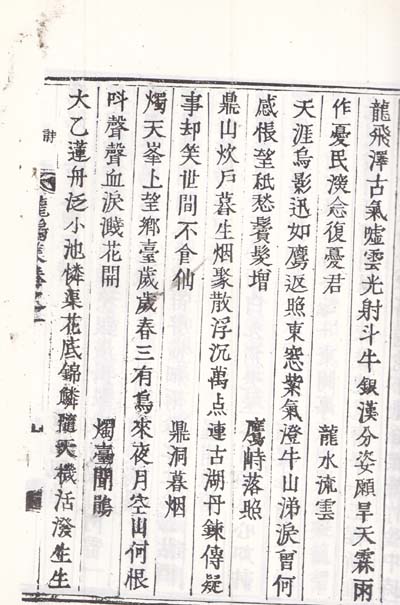 龍飛澤古氣噓雲光射斗牛銀漢分姿願旱天霖雨
作憂民念復憂君 龍水流雲
天涯烏影迅如鷹返照東窓紫氣澄牛山涕淚曾何
感悵望砥愁鬢髮增 鷹峙落照
鼎山炊戶暮生烟聚散浮沉萬点連古湖丹鍊傳疑
事却笑世間不食仙 鼎洞暮烟
燭天峯上望鄉臺歲歲春三有鳥來夜月空山何根
呌聲聲血淚濺花開 燭臺聞鵑
大乙蓮舟泛小池憐渠花底錦鱗隨天機活潑生生
詩